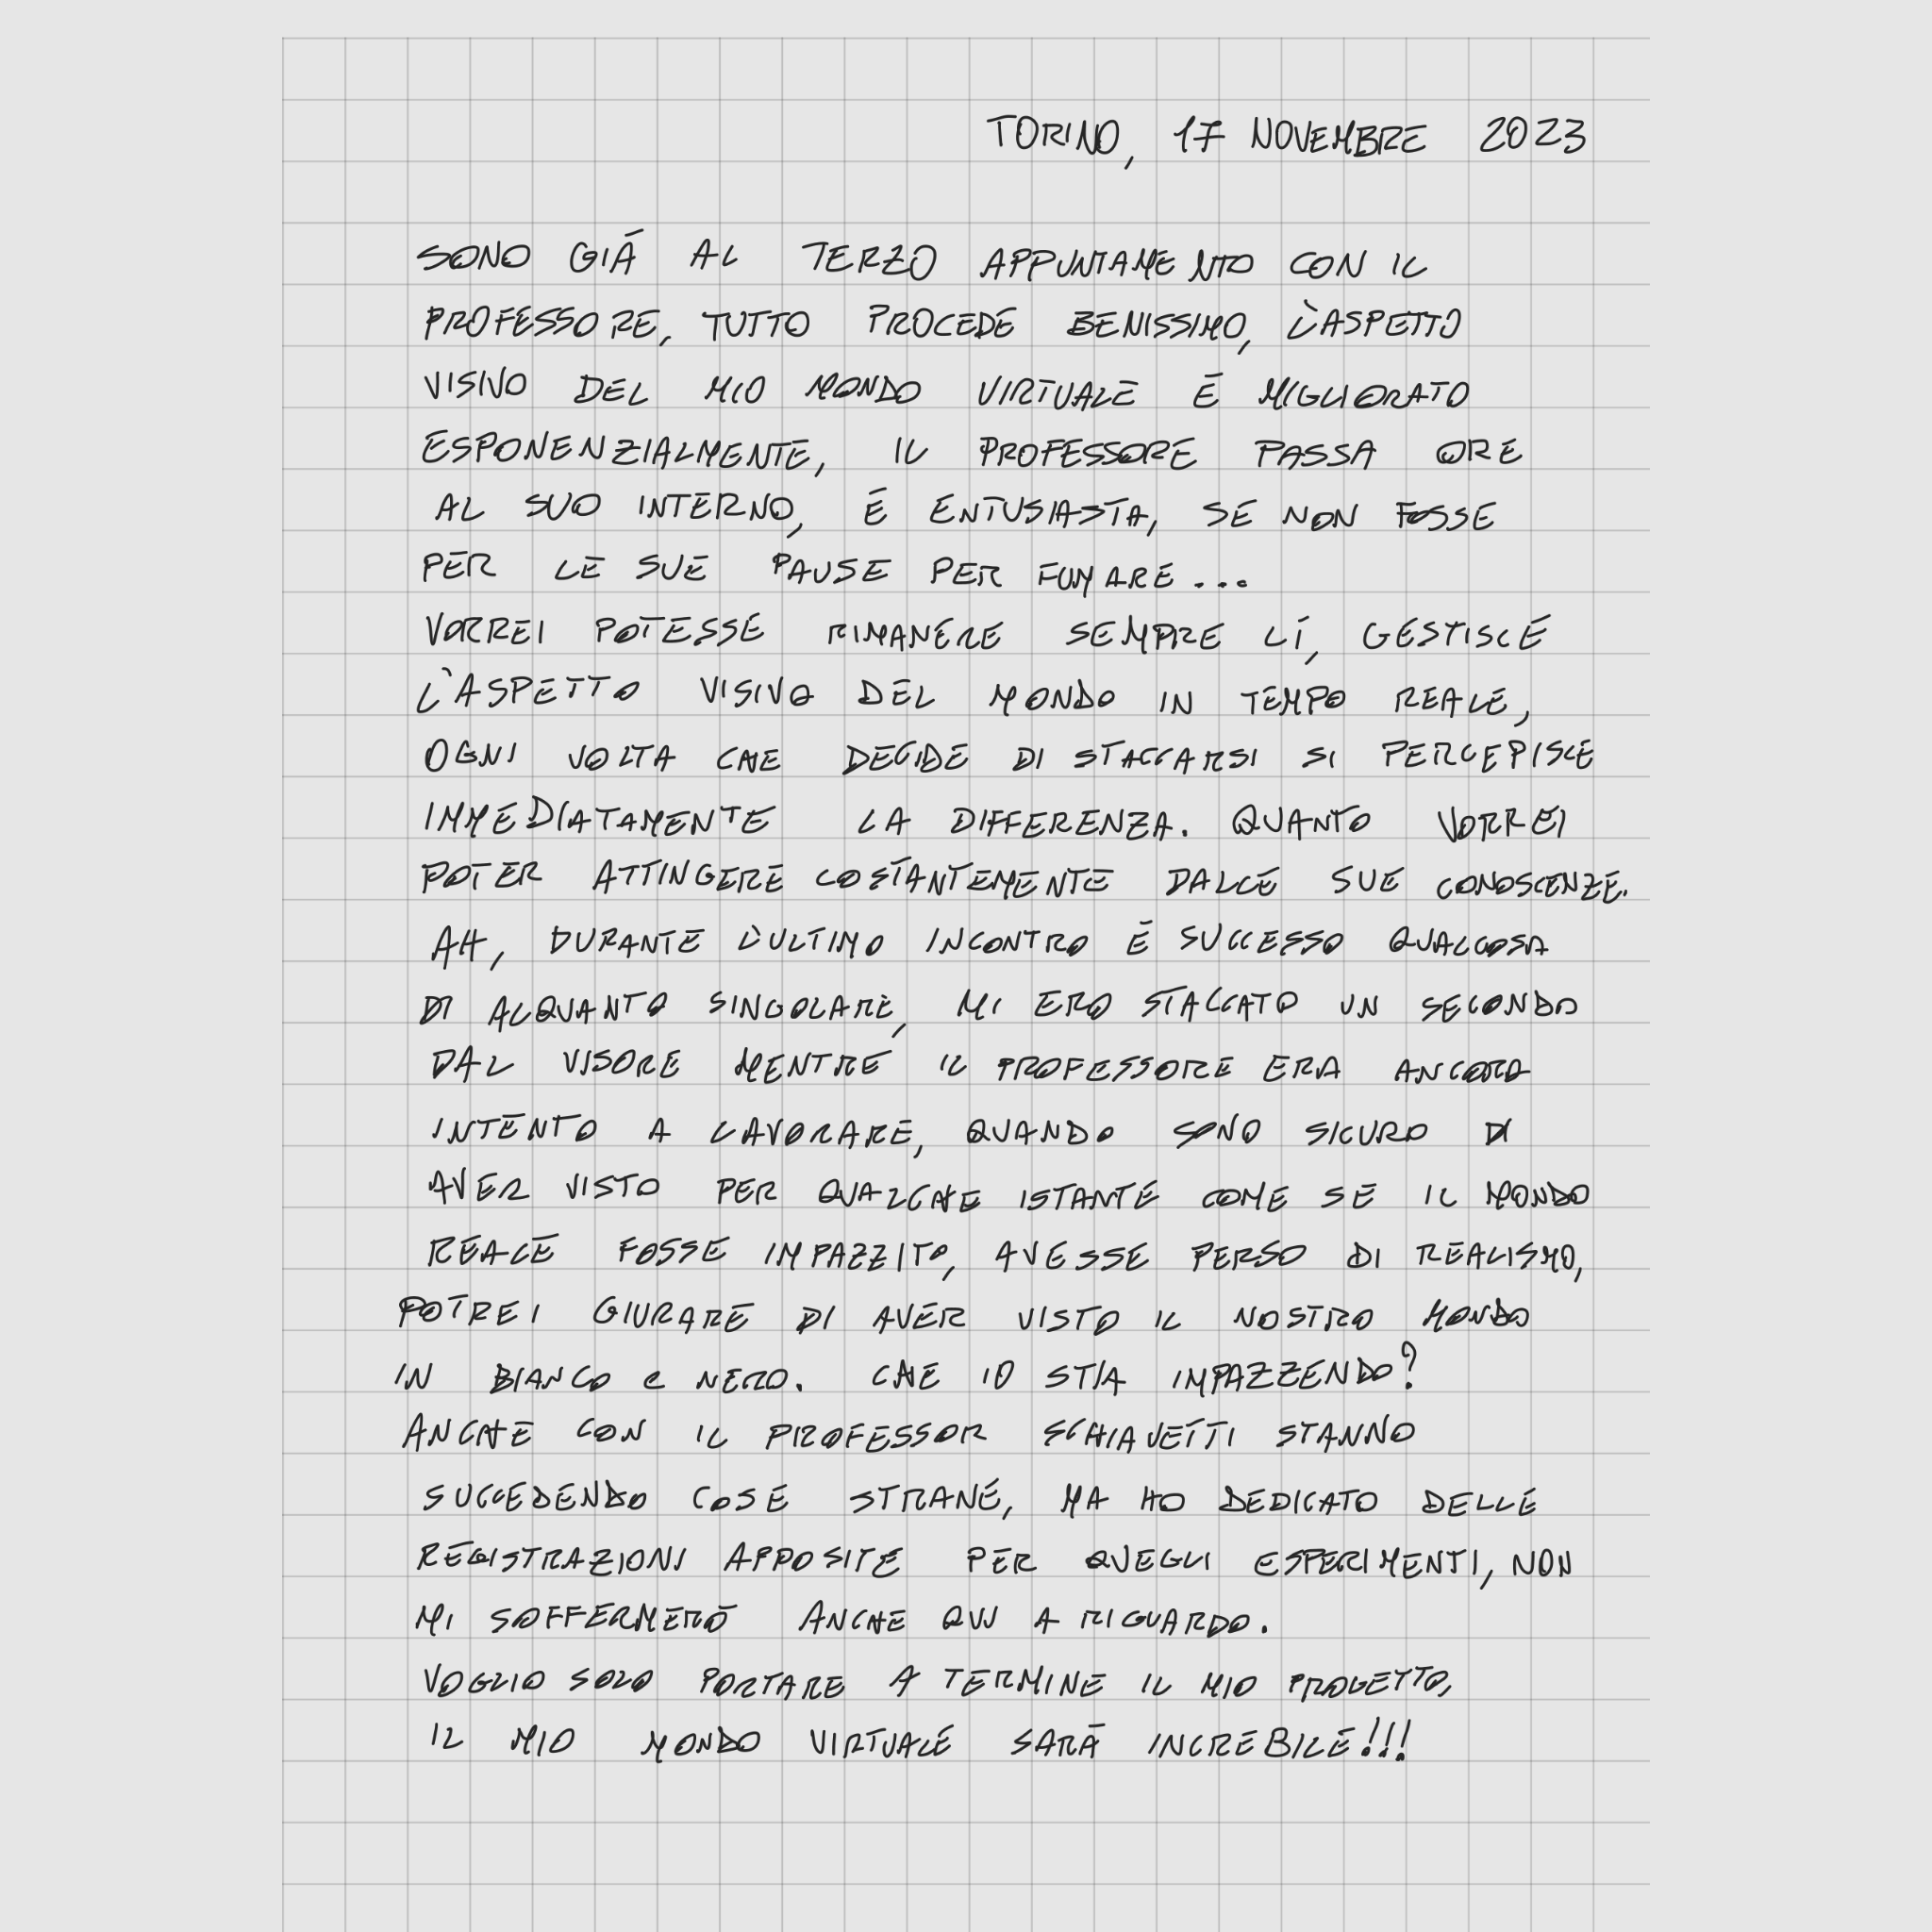 TORINO, 17 NOVEMBRE 2023
SONO GIÁ AL TERZO APPUNTAMENTO CON IL
PROFESSORE, TUTTO PROCEDE BENISSIMO, L'ASPETTO
VISIVO DEL MIO MONDO VIRTUALE É MIGLIORATO
ESPONENZIALMENTE, IL PROFESSORE PASSA ORE
AL SUO INTERNO, É ENTUSIASTA, SE NON FOSSE
PER LE SUE PAUSE PER FUMARE...
VORREI POTESSE RIMANERE SEMPRE LÍ, GESTISCE
L'ASPETTO VISIVO DEL MONDO IN TEMPO REALE,
OGNI VOLTA CHE DECIDE DI STACCARSI SI PERCEPISCE
IMMEDIATAMENTE LA DIFFERENZA. QUANTO VORREI
POTER ATTINGERE COSTANTEMENTE DALLE SUE CONOSCENZE.
AH, DURANTE L'ULTIMO INCONTRO É SUCCESSO QUALCOSA
DI ALQUANTO SINGOLARE, MI ERO STACCATO UN SECONDO
DAL VISORE MENTRE IL PROFESSORE ERA ANCORA
INTENTO A LAVORARE, QUANDO SONO SICURO DI
AVER VISTO PER QUALCHE ISTANTE COME SE IL MONDO
REALE FOSSE IMPAZZITO, AVESSE PERSO DI REALISMO,
POTREI GIURARE DI AVER VISTO IL NOSTRO MONDO
IN BIANCO e NERO. CHE IO STIA IMPAZZENDO?
ANCHE CON IL PROFESSOR SCHIAVETTI STANNO
SUCCEDENDO COSE STRANE, MA HO DEDICATO DELLE
REGISTRAZIONI APPOSITE PER QUEGLI ESPERIMENTI, NON
MI SOFFERMERÓ ANCHE QUI A RIGUARDO.
VOGLIO SOLO PORTARE A TERMINE IL MIO PROGETTO,
IL MIO MONDO VIRTUALE SARÁ INCREBILE!!!